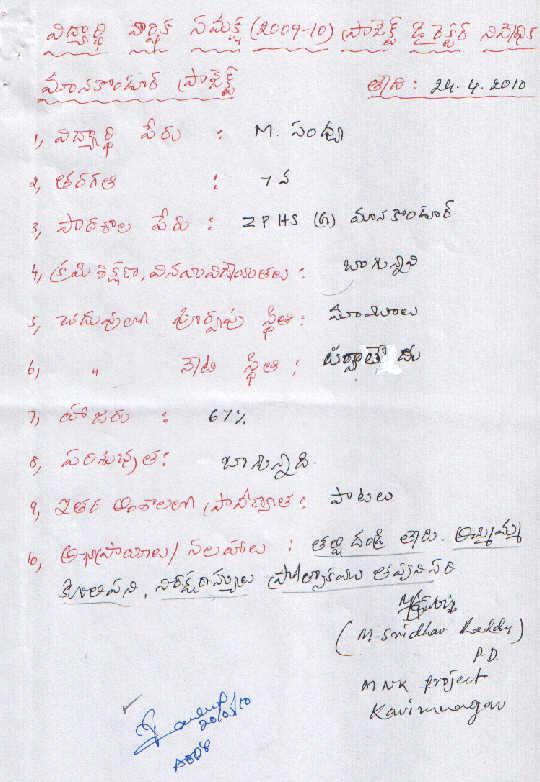 విద్యార్థి వార్షిక సమీక్ష (2009-10) ప్రాజెక్ట్ డైరెక్టర్ నివేదిక
మానకొండూర్ ప్రాజెక్ట్ తేది: 24.4.2010
1, విద్యార్థి పేరు : M. సంధ్య
2, తరగతి : 7 వ
3, పాఠశాల పేరు : ZPHS (G) మానకొండూర్
4, క్రమశిక్షణ, వినయవిధేయతలు : బాగున్నవి
5, చదువులో పూర్వపు స్థితి: మామూలు
6, " నేటి స్థితి :
7, హాజరు : 67%
8, పరిశుభ్రత: బాగున్నది.
9, ఇతర అంశాలలో ప్రావీణ్యత: పాటలు
10, అభిప్రాయాలు/ సలహాలు : తల్లి దండ్రి లేరు. అమ్మమ్మ
కూలిపని, ప్రోత్సాహము తప్పనిసరి
(M. Sridhar Reddy)
P.D.
MNK project
Karimnagar